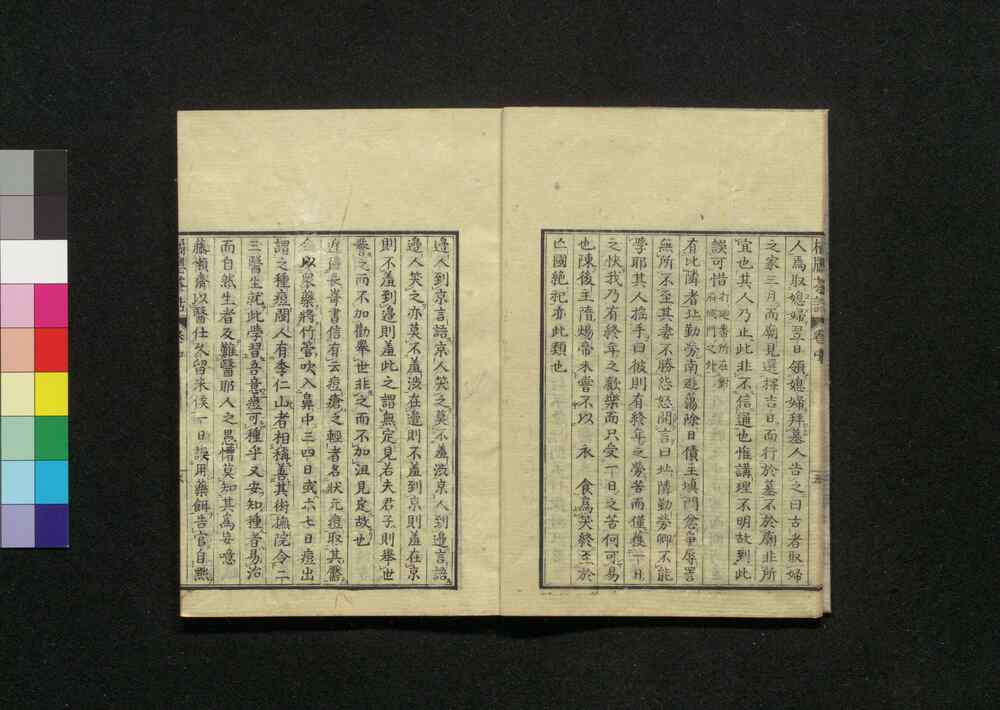 人爲取媳婦翌日領媳婦拜墓人告之曰古者取婦
之家三月而廟見選擇吉日而行於墓不於廟非所
宜也其人乃止此非不信道也惟講理不明故到此
誤可惜
有比隣者北勤勞南遊蕩除日債主塡門忿爭辱詈
無所不至其妻不勝怨怒開言曰北隣勤勞卿不能
學耶其人搖手曰彼則有終年之勞苦而僅獲一日
之快我乃有終年之歡樂而只受一日之苦何可易
也陳後主隋煬帝未嘗不以 永 食爲笑終至於
亡國絶祀亦此類也
邊人到京言語京人笑之莫不羞澁京人到邊言語
邊人笑之亦莫不羞澁在邊則不羞到京則羞在京
則不羞到邊則羞此之謂無定見若夫君子則擧世
譽之而不加勸擧世非之而不加沮見定故也
近 長壽書信有云痘瘡之輕者名狀元痘取其醫
以衆藥將竹管吹入鼻中三四日或六七日痘出
謂之種痘閩人有李仁山者相稱善其術撫院令二
三醫生就此學習吾意痘可種乎又安知種者易治
而自然生者反難醫耶人之愚懵莫知其爲妄噫
藤懶齋以醫仕久留米侯一日誤用藥餌告官自熙